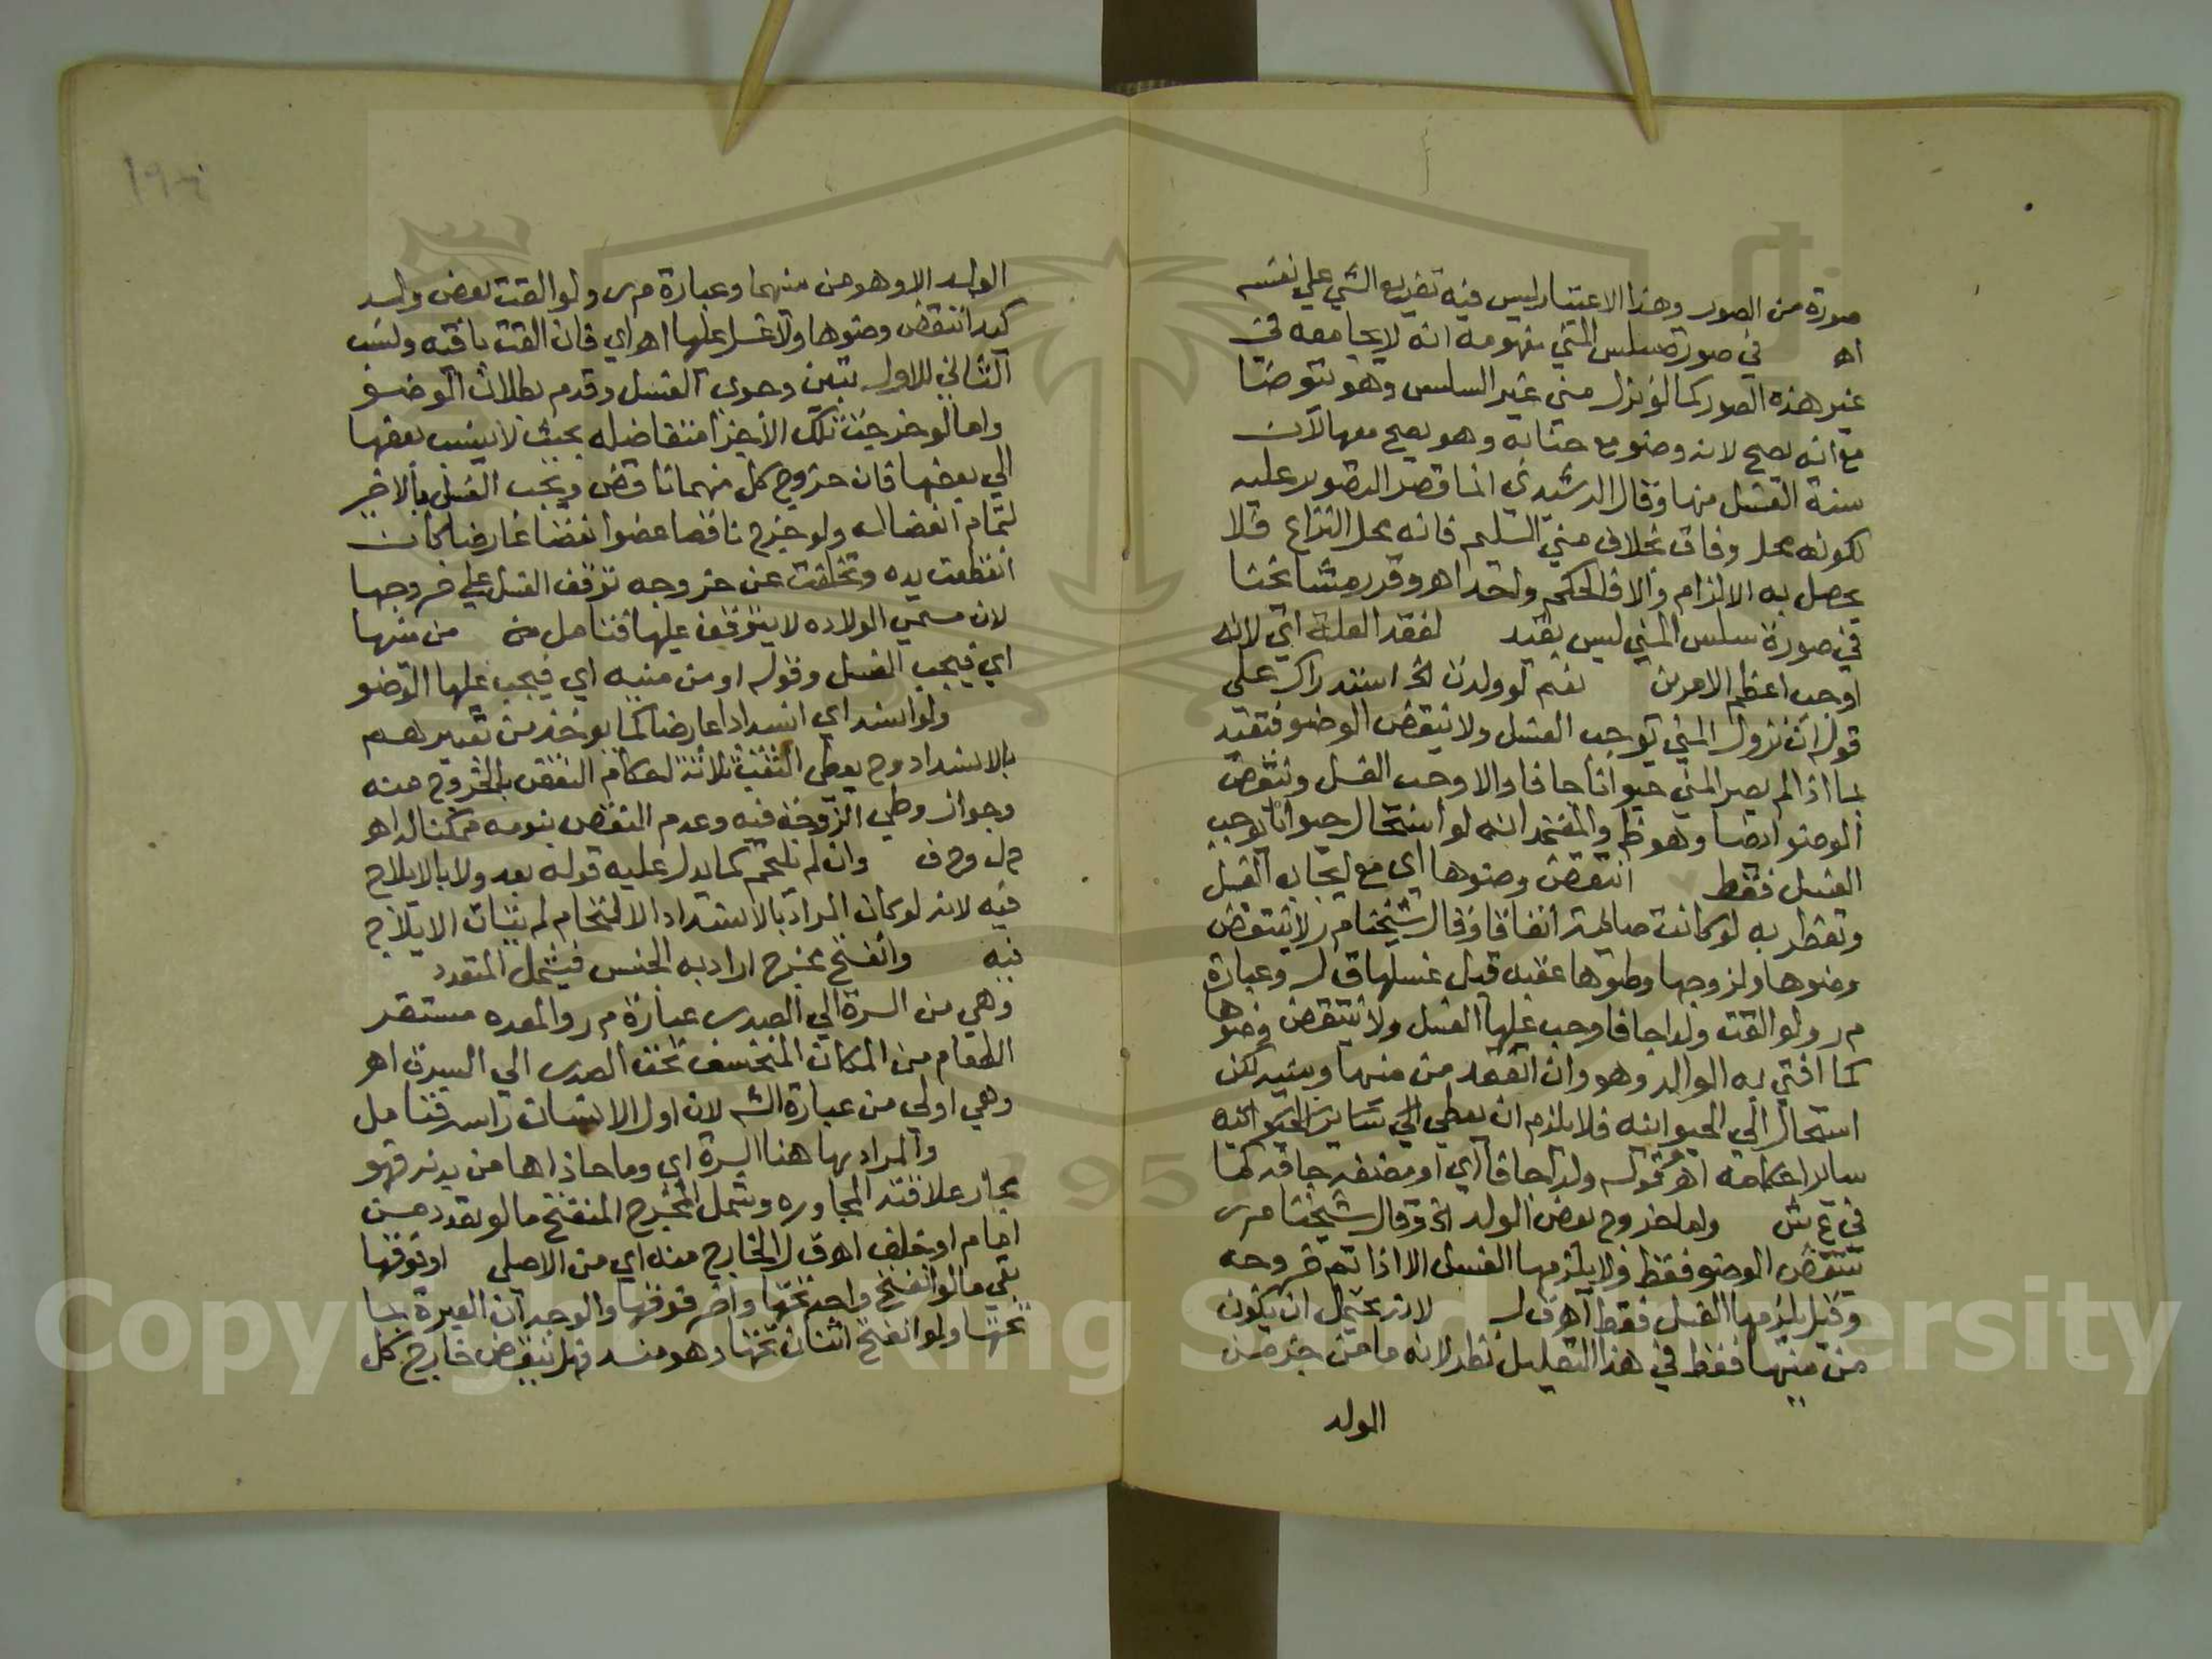 صورة من الصور وهذا الاعتبار ليس فيه تفريع الشي علي نفسه
اه في صورة سلس المني مفهومه انه لا يجامعه في
غير هذه الصور كما لو نزل مني غير السلس وهو يتوضا
مع انه يصح لانه وضو مع جنابة وهو يصح معها لان
سنة الغسل منها وقال الرشيدي انما قصر التصوير عليه
لكونه محل وفاق بخلاف مني السليم فانه محل النزاع فلا
يحصل به الالزام والا فالحكم واحد اهـ وقرر مشايخنا
في صورة سلس المني ليس بقيد لفقد العلة اي لانه
اوجب اعظم الامرين نعم لو ولدت الخ استدراك علي
قوله ان نزول المني يوجب الغسل ولا ينقض الوضو فتقيد
بما اذا لم يصر المني حيوانا جافا والا وجب الغسل وينقض
الوضو ايضا وهو ظ والمعتمد انه لو استحال حيوانا يوجب
الغسل فقط انتقض وضوها اي مع ايجابه الغسل
وتفطر به لو كانت صايمة اتفاقا وقال شيخنا م ر لا ينتقض
وضوها ولزوجها وطئها عقبه قبل غسلها ق ل وعبارة
م ر ولو القت ولدا جافا وجب عليها الغسل ولا ينتقض وضوها
كما افتي به الوالد وهو وان انعقد من منيها ومنيه لكن
استحال الي الحيوانية فلا يلزم ان يعطي اي ساير الحيوانيه
ساير احكامه اهـ وقوله ولدا جافا اي او مضغة جافة كما
في ع ش واما خروج بعض الولد الخ وقال شيخنا م ر
ينتقض الوضو فقط ولا يلزمها الغسل الا اذا تم خروجه
وقيل يلزمها الغسل فقط اهـ ق ل لانه يحتمل ان يكون
من منيها فقط في هذا التعليل نظر لانه ما من جزء من
الولد
الولد الا وهو من منيهما وعبارة م ر ولو القت بعض ولد
كيد انتقض وضوها ولا غسل عليها اهـ اي فان القت باقيه ولنسب
الثاني للاول يتبين وجوب الغسل وقدم بطلان الوضو
واما لو خرجت تلك الاجزا متفاضله بحيث لا ينسب بعضها
الي بعضها فان خروج كل منهما ناقض ويجب الغسل بالاخر
لتمام انفصاله ولو خرج ناقصا عضوا نقصا عارضا كان
انقطعت يده وتخلفت عن خروجه توقف الغسل علي خروجها
لان مسمي الولاده لا يتوقف عليها فتامل من منيها
اي فيجب الغسل وقوله او من منيه اي فيجب عليها الوضو
ولو انسد اي انسدادا عارضا كما يوخذ من تعبيرهم
بالانسداد وح يعطي الثقبة ثلاثة احكام النقض بالخروج منه
وجواز وطي الزوجة فيه وعدم النقض بنومه ممكنا له اهـ
وان لم يلتحم كما يدل عليه قوله بعد ولا بالايلاج
فيه لانه لو كان المراد بالانسداد الالتحام لم يتات الايلاج
فيه وانفتح مخرج اراد به الجنس فيشمل المتعدد
وهي من السرة الي الصدر عبارة م ر والمعده مستقر
الطعام من المكان المنخسف تحت الصدر الي السرة اهـ
وهي اولي من عبارة الشه لان اول الانسان راسه فتامل
والمراد بها هنا السرة اي وما حاذاها من بدنه فهو
مجاز علاقته المجاوره وشمل المخرج المنفتح ما لو تعدد من
امام او خلف اهـ ق ل الخارج منه اي من الاصلي او فوقها
بقي ما لو انفتح واحد تحتها واخر فوقها والوجه ان العبرة بما
تحتها ولو انفتح اثنان تحتها وهو منسد فهل ينقض خارج كل